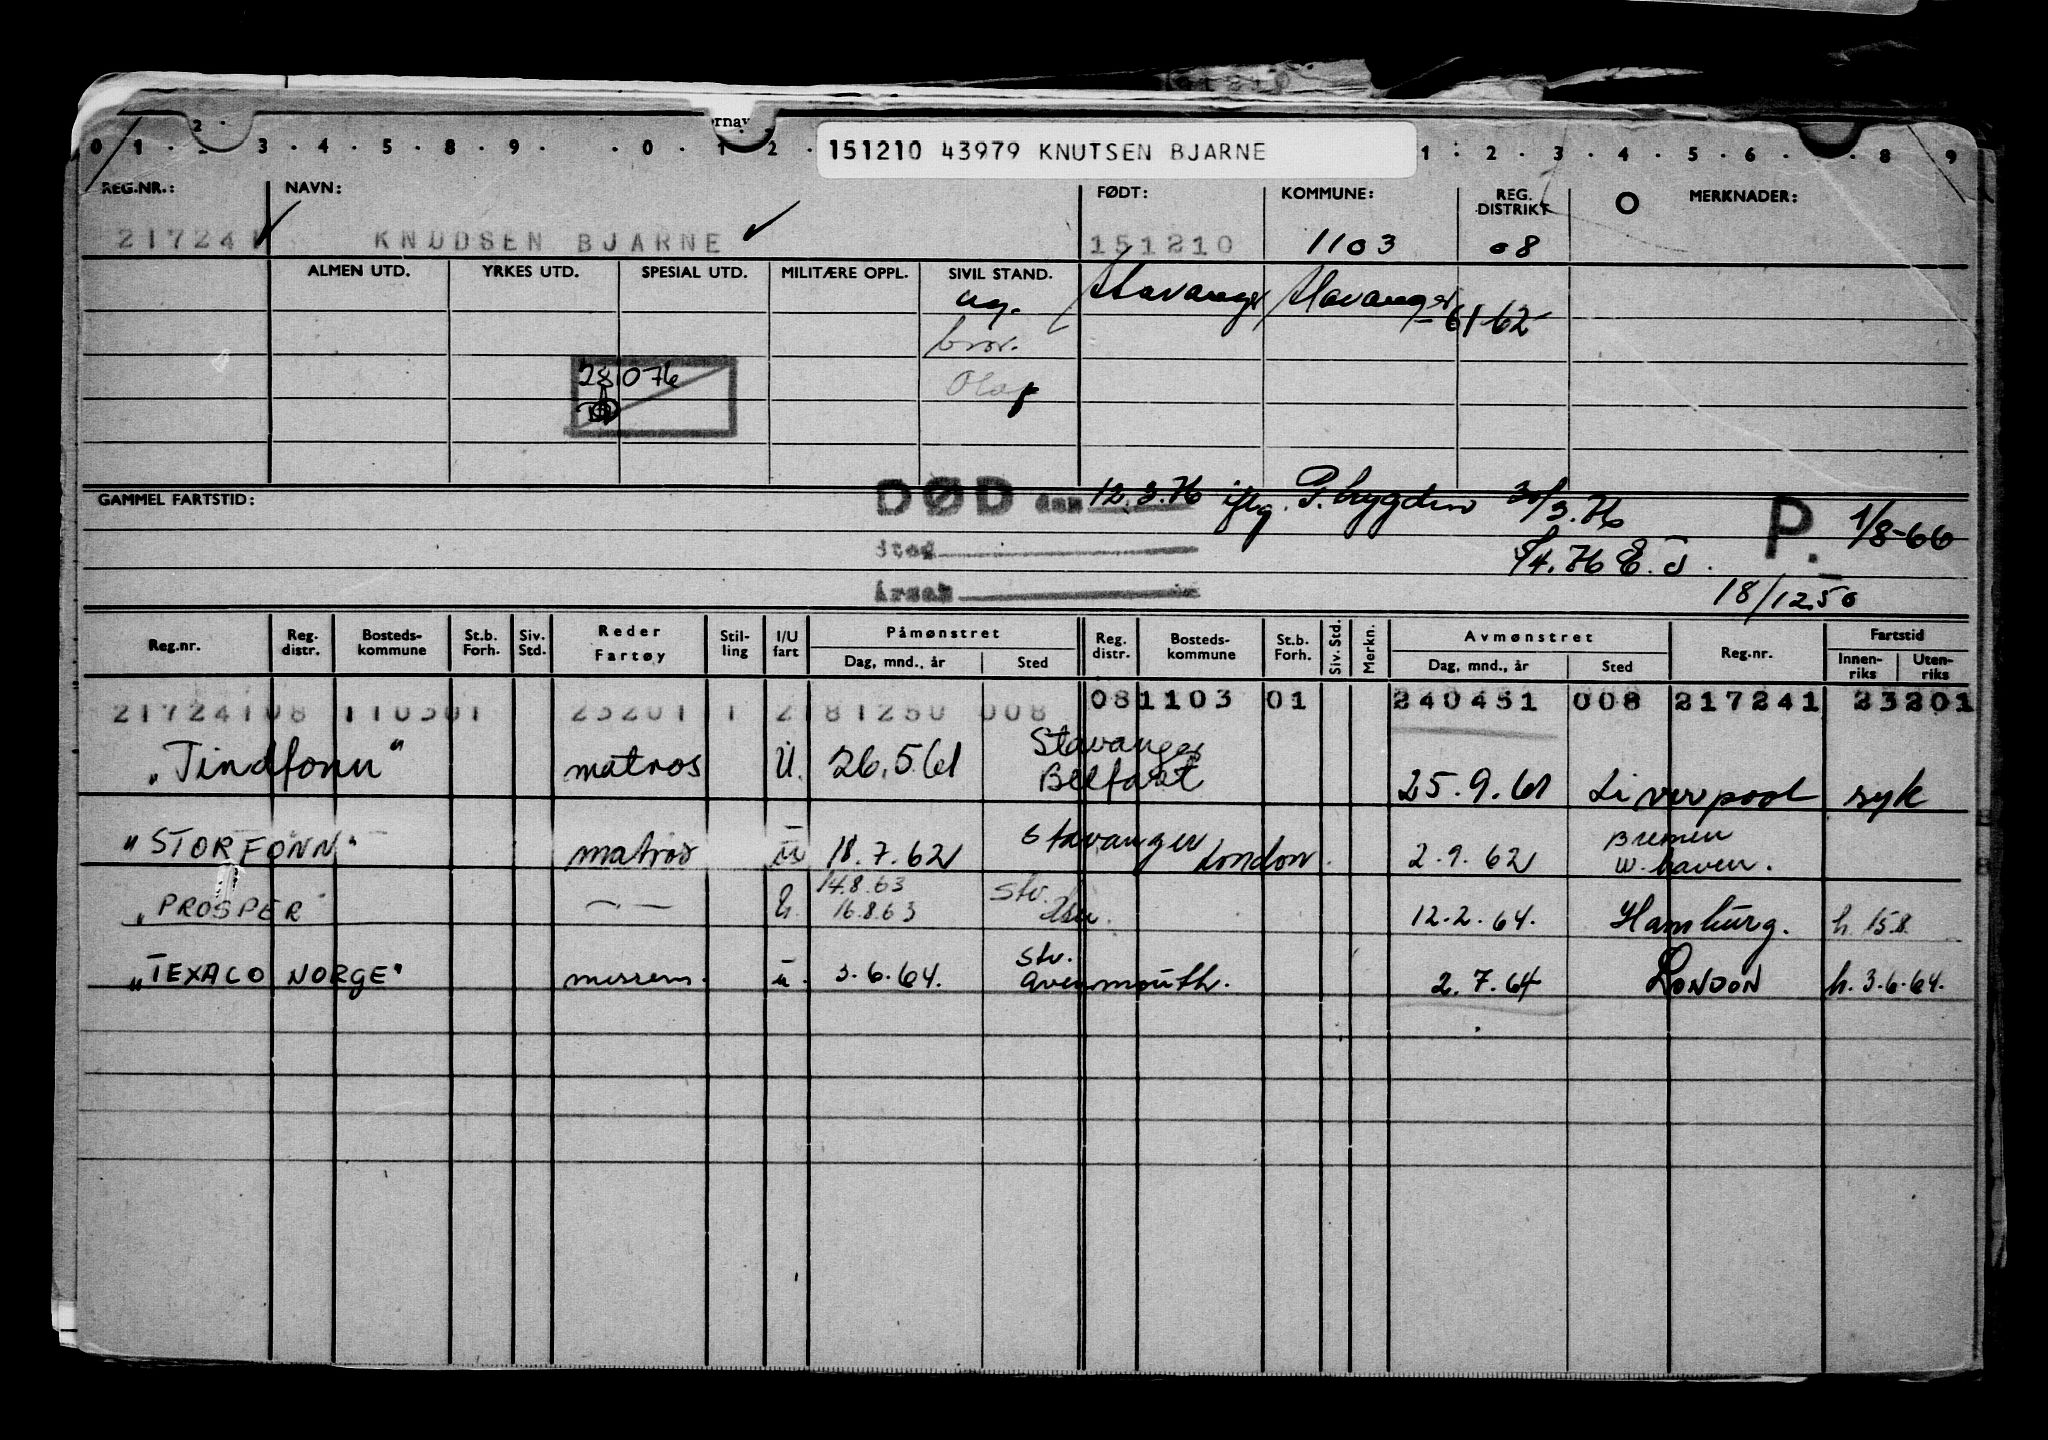 151210 43979 KNUTSEN BJARNE
0 1 . 2 . 3 . 4 . 5 . 8 . 9 . . 0 . 1 2 . 1 . 2 . 3 . 4 . 5 . 6 . 8 9
REG.NR.: NAVN: FØDT: KOMMUNE: REG. DISTRIKT MERKNADER:
217241 KNUDSEN BJARNE 151210 1103 08
ALMEN UTD. YRKES UTD. SPESIAL UTD. MILITÆRE OPPL. SIVIL STAND.
ug. Stavanger Stavanger
61-62
bror.
281076
Olaf
GAMMEL FARTSTID: DØD den 12.3.76 iflg. P. bygden 30/3.76
P. 1/8-66
Sted
Årsak
18/12.50
Reg.nr. Reg. distr. Bosteds-kommune St.b. Forh. Siv. Std. Reder Fartøy Stil-ling I/U fart Påmønstret Dag, mnd., år Sted Reg. distr. Bosteds-kommune St.b. Forh. Siv. Std. Merkn. Avmønstret Dag, mnd., år Sted Reg.nr. Fartstid Innen-riks Uten-riks
21724108 110301 23201 1 2 81250 008 081103 01 240451 008 217241 23201
"Tindfonn" matros U. 26.5.61 Stavanger Belfast 25.9.61 Liverpool syk
"STORFONN" matros u 18.7.62 Stavanger London. 2.9.62 Bremen W. haven.
"PROSPER" — — 14.8.63 16.8.63 Stv. 12.2.64. Hamburg. h. 15.8.
"TEXACO NORGE" u. 3.6.64. Stv. Avenmouth. 2.7.64 LONDON h. 3.6.64.